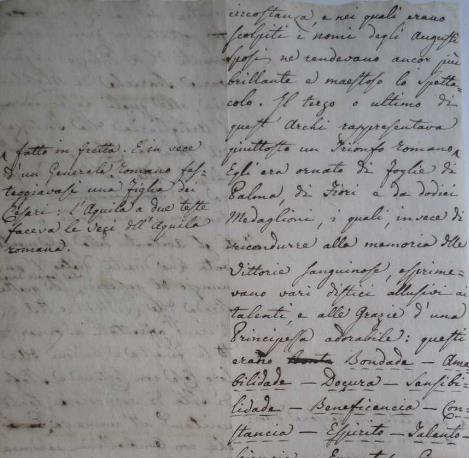 circostanza, e nei quali erano
scolpiti i nomi degli Augusti
Sposi ne rendevano ancor più
brillante e maestoso lo spetta-
colo. Il terzo e ultimo di
questi Archi rappresentava
piuttosto un Trionfo Romano
Egli era ornato di foglie di
Palma, di Fiori e da dodici
Medaglioni, i quali, invece di
ricondurre alla memoria delle
Vittorie sanguinose, esprime-
vano vari distici allusivi ai
talenti, e alle Grazie d'una
Principessa adorabile: questi
erano Bondade — Ama
bilidade — Doçura — Sensibi-
lidade — Beneficencia — Con-
stancia — Espirito — Talento —
fatto in fretta. E in vece
d'un Generale Romano fes-
teggiavasi una figlia dei
Cesari: l'Aquila a due teste
faceva le veci dell'Aquila
romana.